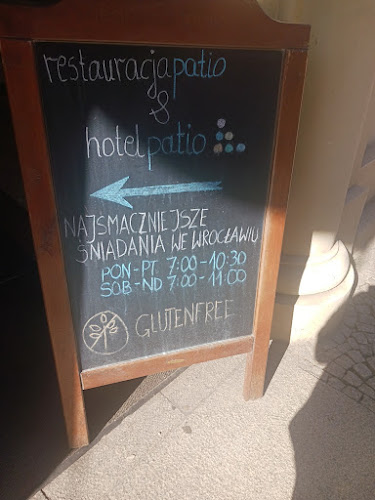 restauracja patio
&
hotel patio
NAJSMACZNIEJSZE
ŚNIADANIA WE WROCŁAWIU
PON-PT 7:00-10:30
SOB-ND 7:00-11:00
GLUTENFREE